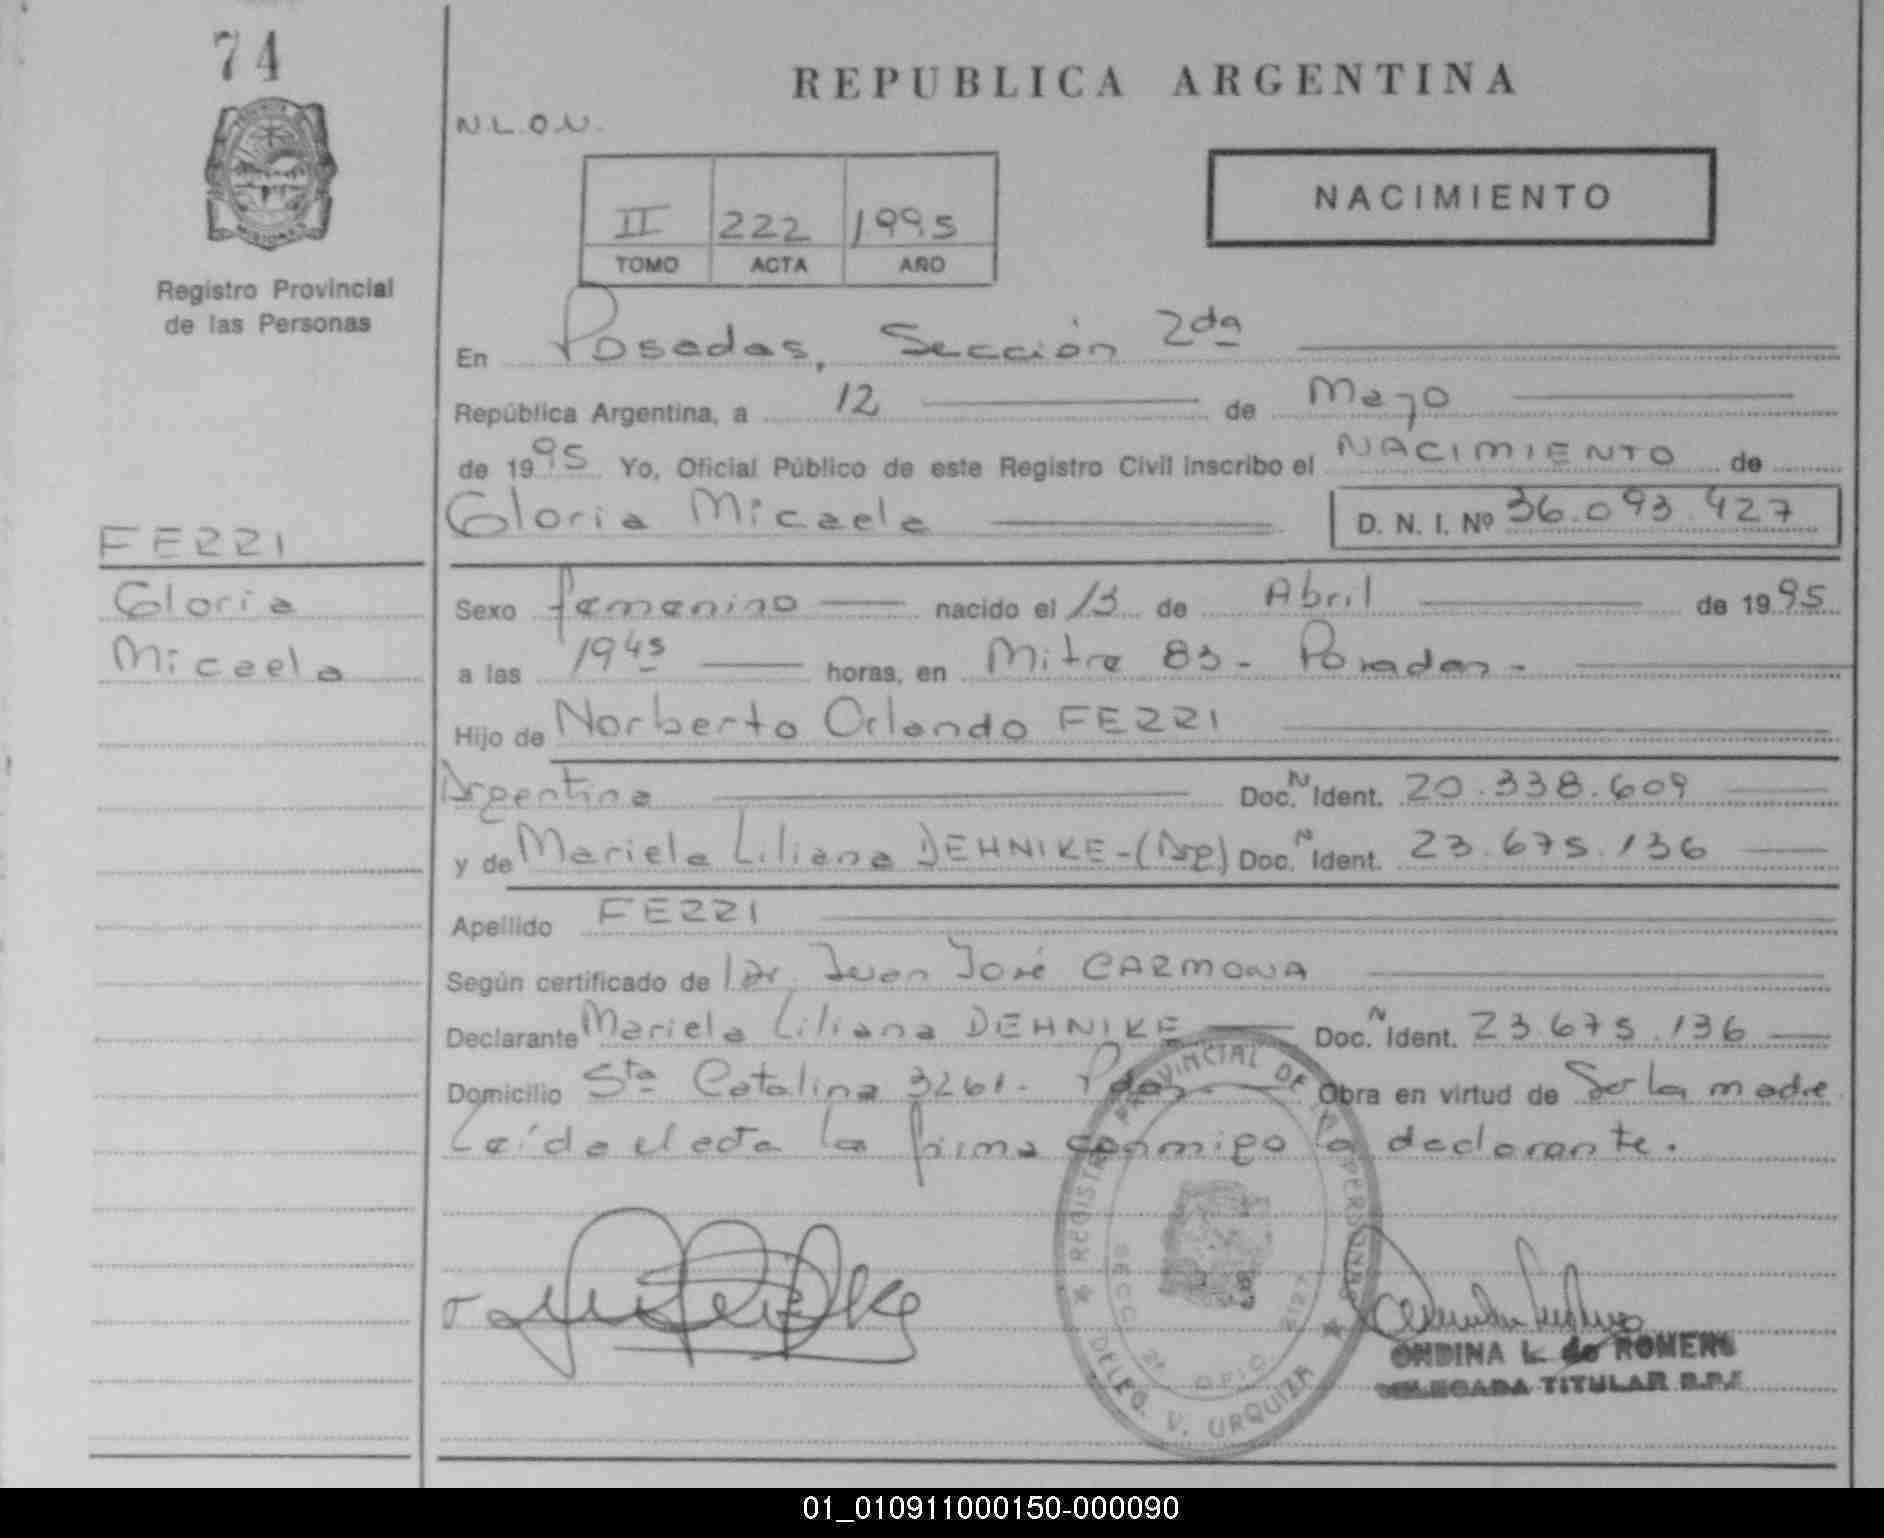 74
REPUBLICA ARGENTINA
N.L.O.N.
NACIMIENTO
II 222 1995
TOMO ACTA AÑO
Registro Provincial
de las Personas
En Posadas, Sección 2da
República Argentina, a 12 de Mayo
de 1995 Yo, Oficial Público de este Registro Civil inscribo el NACIMIENTO de
Gloria Micaela D. N. I. Nº 36.093.427
FEZZI
Gloria
Micaela
Sexo femenino nacido el 13 de Abril de 1995
a las 1945 horas, en Mitre 83 - Posadas -
Hijo de Norberto Orlando FEZZI
Argentina Doc. N Ident. 20.338.609
y de Mariela Liliana DEHNIKE - (Arg) Doc. N Ident. 23.675.136
Apellido FEZZI
Según certificado de Dr. Juan José CARMONA
Declarante Mariela Liliana DEHNIKE Doc. N Ident. 23.675.136
Domicilio Sta Catalina 3261 - Pdas. Obra en virtud de Ser la madre
Leída el acta la firma conmigo la declarante.
REGISTRO PROVINCIAL DE LAS PERSONAS
SECC. 2ª OFIC. 2127
DELEG. V. URQUIZA
ONDINA L. de ROMERO
DELEGADA TITULAR R.P.P.
01_010911000150-000090